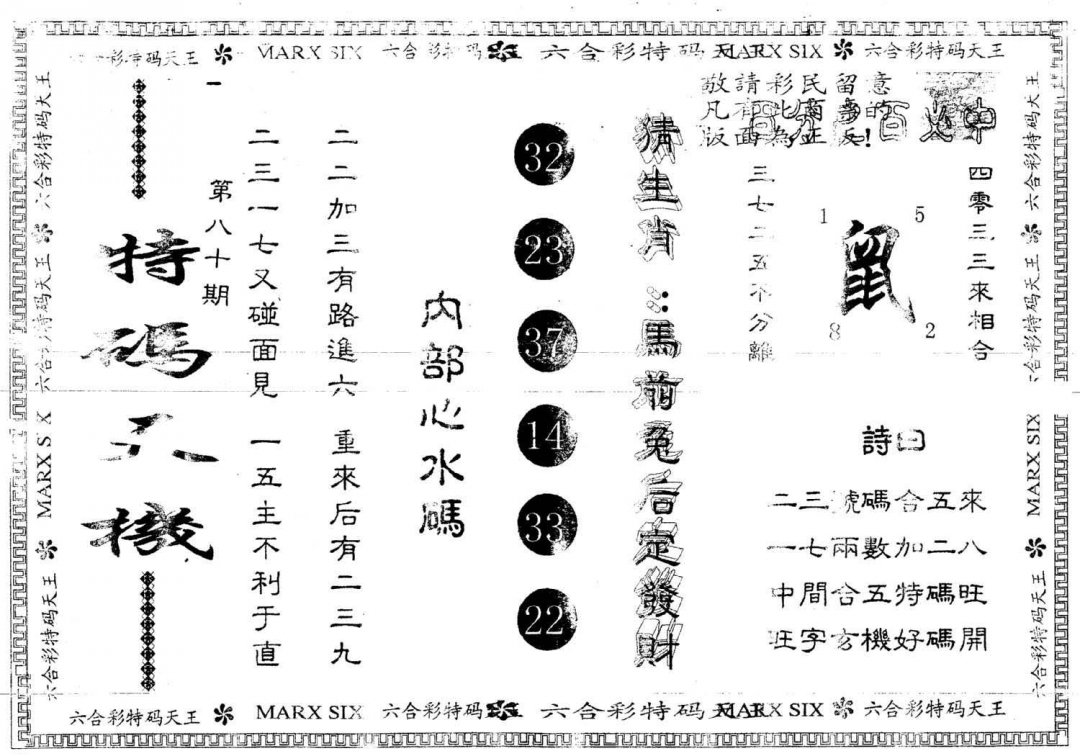 六合彩特码天王 MARX SIX 六合彩特码 六合彩特码天王 MARX SIX 六合彩特码天王
敬請彩民留意
凡有此的
版面為正反!
百火中
四零三三來相合
1 5
鼠
8 2
三七二五不分離
詩曰
二三號碼合五來
一七兩數加二八
中間合五特碼旺
旺字玄機好碼開
猜生肖：馬前兔后定發財
32
23
37
14
33
22
內部心水碼
二二加三有路進六
重來后有二三九
二三一七又碰面見
一五主不利于直
第八十期
特碼天機
六合彩特码天王
六合彩特码天王
MARX SIX
六合彩特码天王
六合彩特码天王
六合彩特码天王
MARX SIX
六合彩特码天王
六合彩特码天王 MARX SIX 六合彩特码 六合彩特码天王 MARX SIX 六合彩特码天王